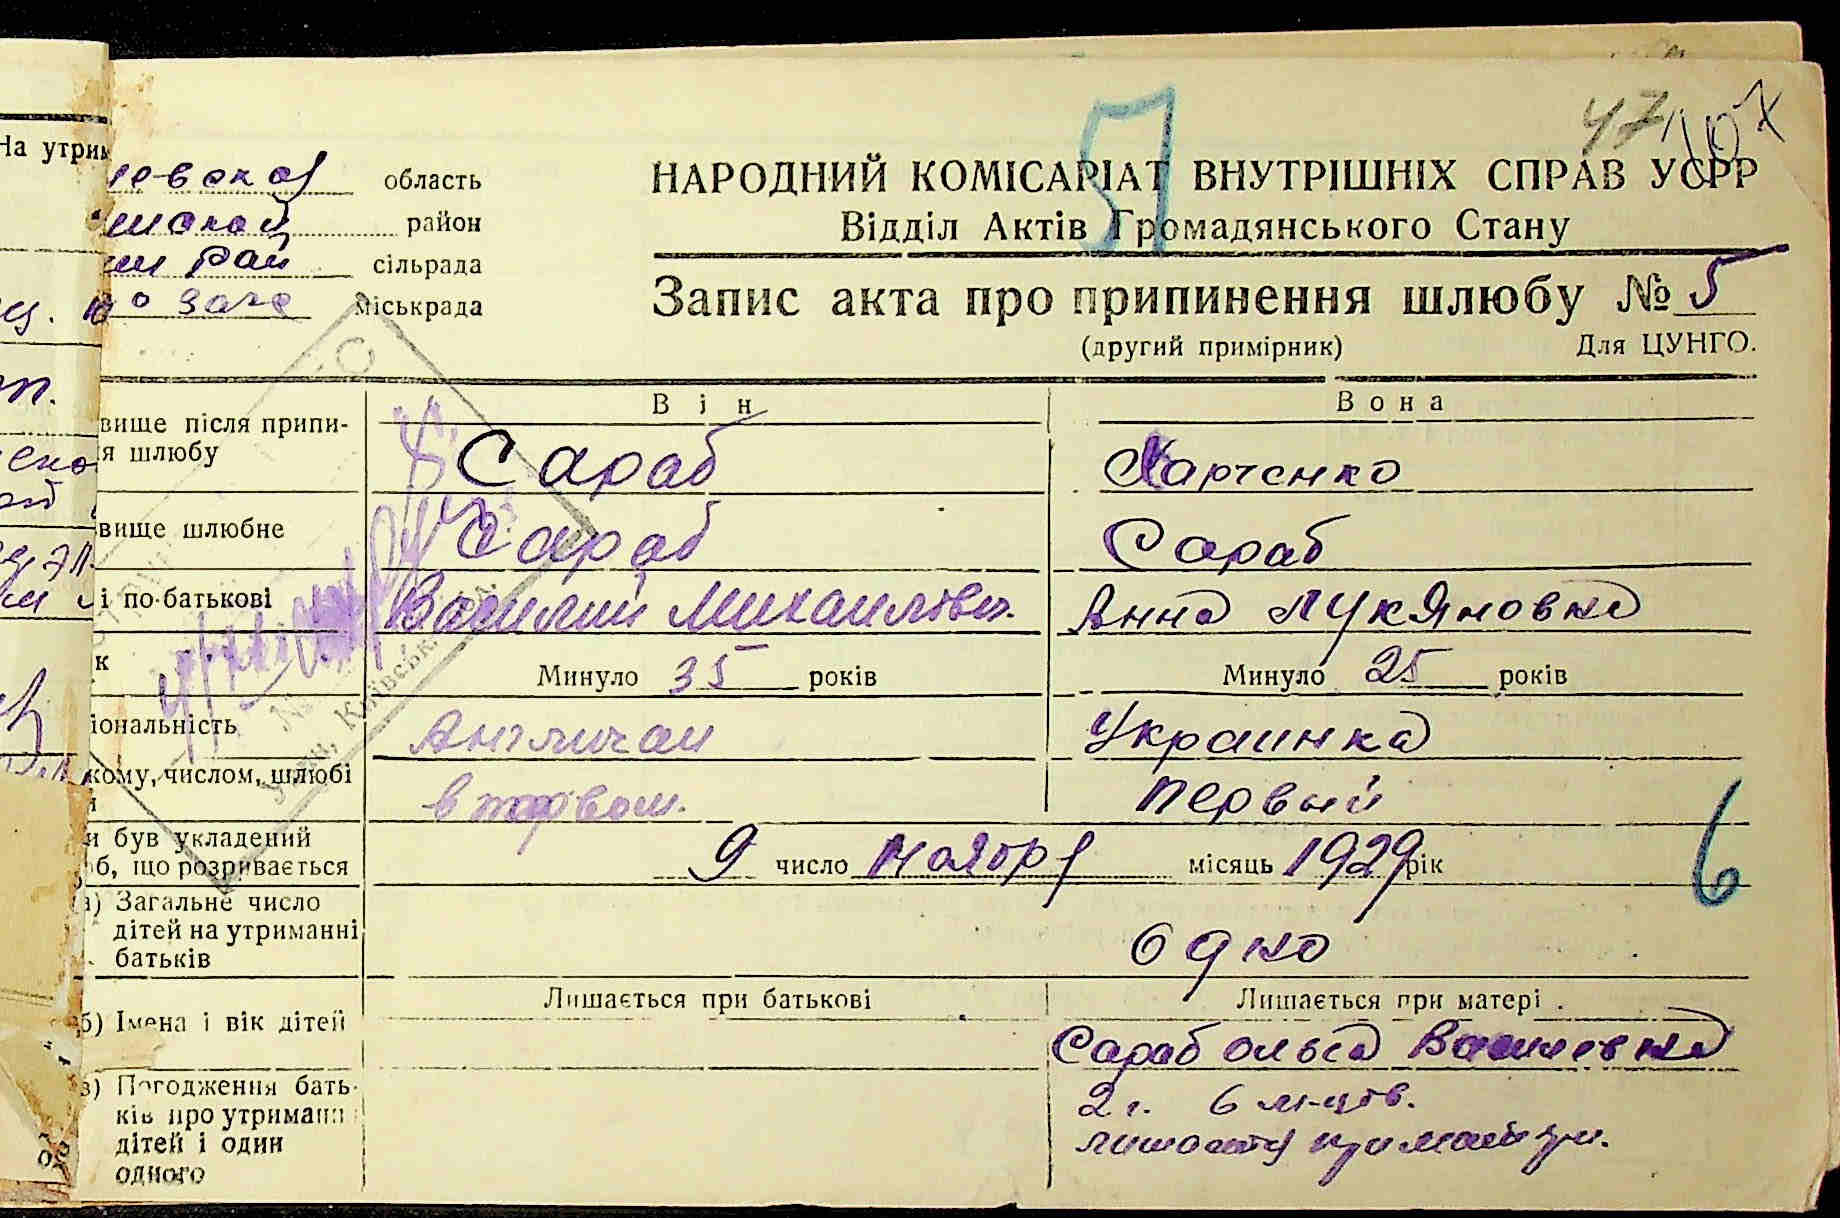 47 107
На утрим
НАРОДНИЙ КОМІСАРІАТ ВНУТРІШНІХ СПРАВ УСРР
Відділ Актів Громадянського Стану
область
район
рай сільрада
міськрада
Запис акта про припинення шлюбу № 5
(другий примірник) Для ЦУНГО.
Він Вона
вище після припи-
я шлюбу
Сараб Харченко
вище шлюбне Сараб Сараб
і по-батькові Василий Михайлович Анна Лукяновна
к Минуло 35 років Минуло 25 років
іональність Англичан Украинка
кому, числом, шлюбі
и
в первом. первый
и був укладений
б, що розривається
9 число Ноября місяць 1929 рік
6
а) Загальне число
дітей на утриманні
батьків
одно
Лишається при батькові Лишається при матері
б) Імена і вік дітей Сараб Ольга Василевна
2 г. 6 м-цев.
в) Погодження бать-
ків про утримання
дітей і один
одного